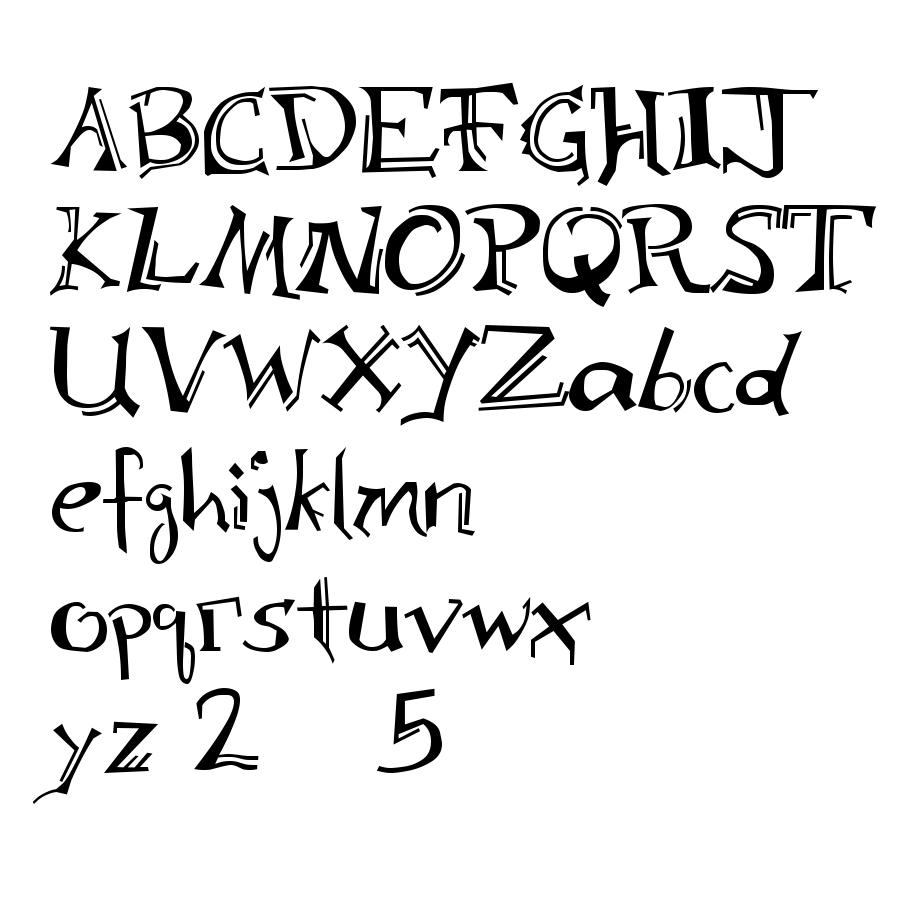 ABCDEFGHIJ
KLMNOPQRST
UVWXYZabcd
efghijklmn
opqrstuvwx
yz2 5